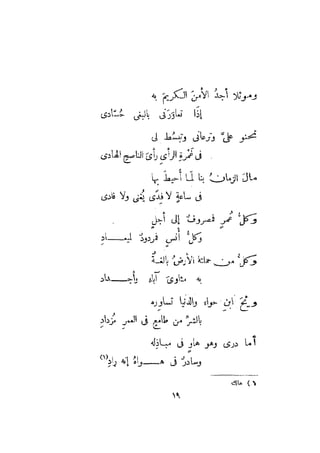 وموئلا أجدُ الأمنَ الكريمَ به
إذا تعاوَرَنى بالبغى حُسّادى
تحنو علىَّ وترعانى وتبسُط لى
فى غمرةِ الرأى رأىَ الناصح الهادى
مالَ الزمانُ بنا لمّا أُحيطَ بها
فى ساعةٍ لا فِدًى يُغنى ولا فادى
وكلُّ عُمرٍ فمصروفٌ إلى أجلٍ
وكلُّ أُنسٍ فمردودٌ لميعـــاد
وكلُّ من حملته الأرضُ بالغةٌ
به مثاوىَ آباءٍ وأجــــداد
ويحَ ابنِ حواء والدنيا تساوره
بالشرِّ من طامعٍ فى العمر مُزداد
أما درى وهو هاوٍ فى مباذله
وسادرٌ فى هـــواهُ إنه رادِ(١)
(١) هالك
١٩